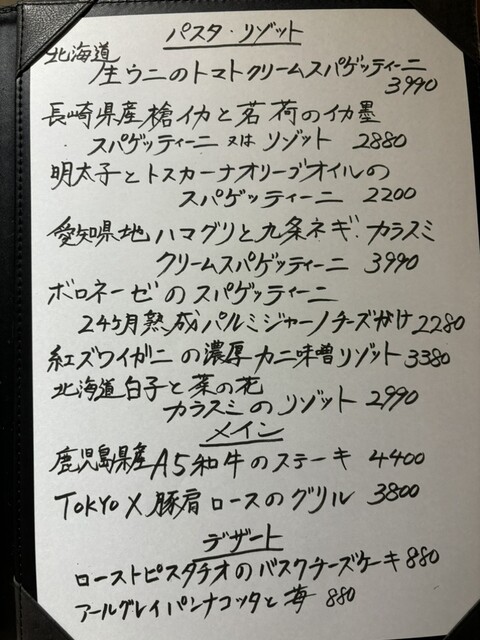 パスタ・リゾット
北海道
生ウニのトマトクリームスパゲッティーニ
3990
長崎県産槍イカと茗荷のイカ墨
スパゲッティーニ 又は リゾット 2880
明太子とトスカーナオリーゴオイルの
スパゲッティーニ 2200
愛知県地ハマグリと九条ネギ.カラスミ
クリームスパゲッティーニ 3990
ボロネーゼのスパゲッティーニ
24ヶ月熟成パルミジャーノチーズがけ 2280
紅ズワイガニの濃厚カニ味噌リゾット 3380
北海道白子と菜の花
カラスミのリゾット 2990
メイン
鹿児島県産A5和牛のステーキ 4400
TOKYO X豚肩ロースのグリル 3800
デザート
ローストピスタチオのバスクチーズケーキ 880
アールグレイパンナコッタと苺 880